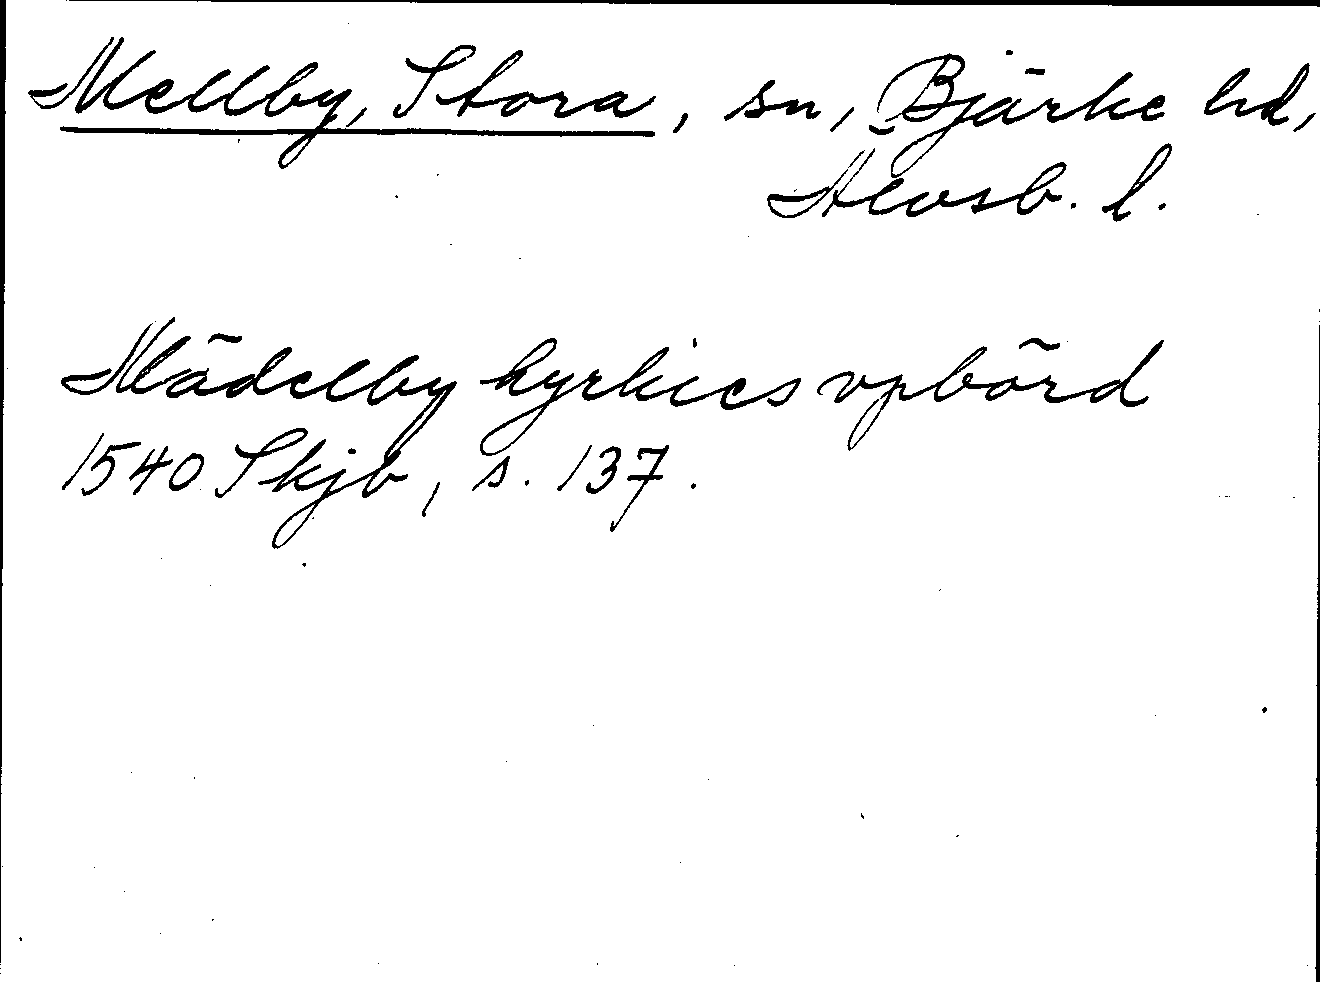 Mellby, Stora, sn, Bjärke hd,
Älvsb. l.
Mädelby kyrkies vpbörd
1540 Skjb, s. 137.